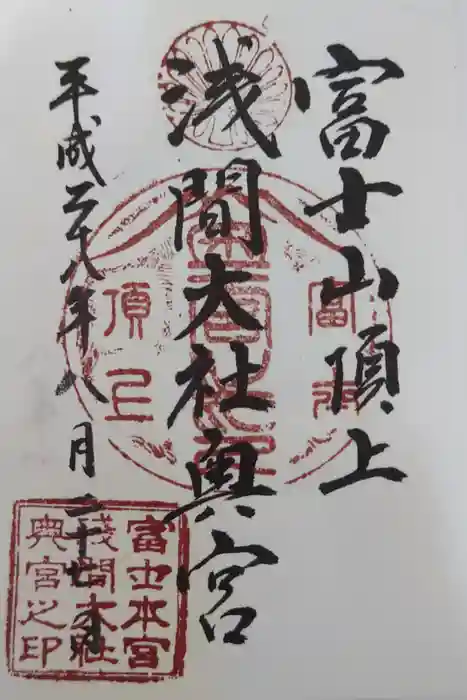 富士山頂上
浅間大社奥宮
平成二十八年八月二十七日
富士
頂上
富士本宮
淺間大社
奥宮之印